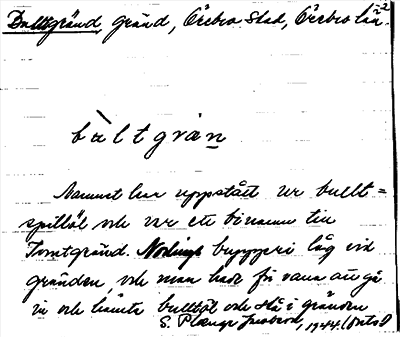 Bulltgränd, gränd, Örebro Stad, Örebro län.
bùltgrän
Namnet har uppstått ur bullt=
spillöl och var ett binamn till
Tomtgränd. bryggeri låg vid
gränden, och man hade för vana att gå
in och hämta bulltöl och stå i gränden
S. 1944.